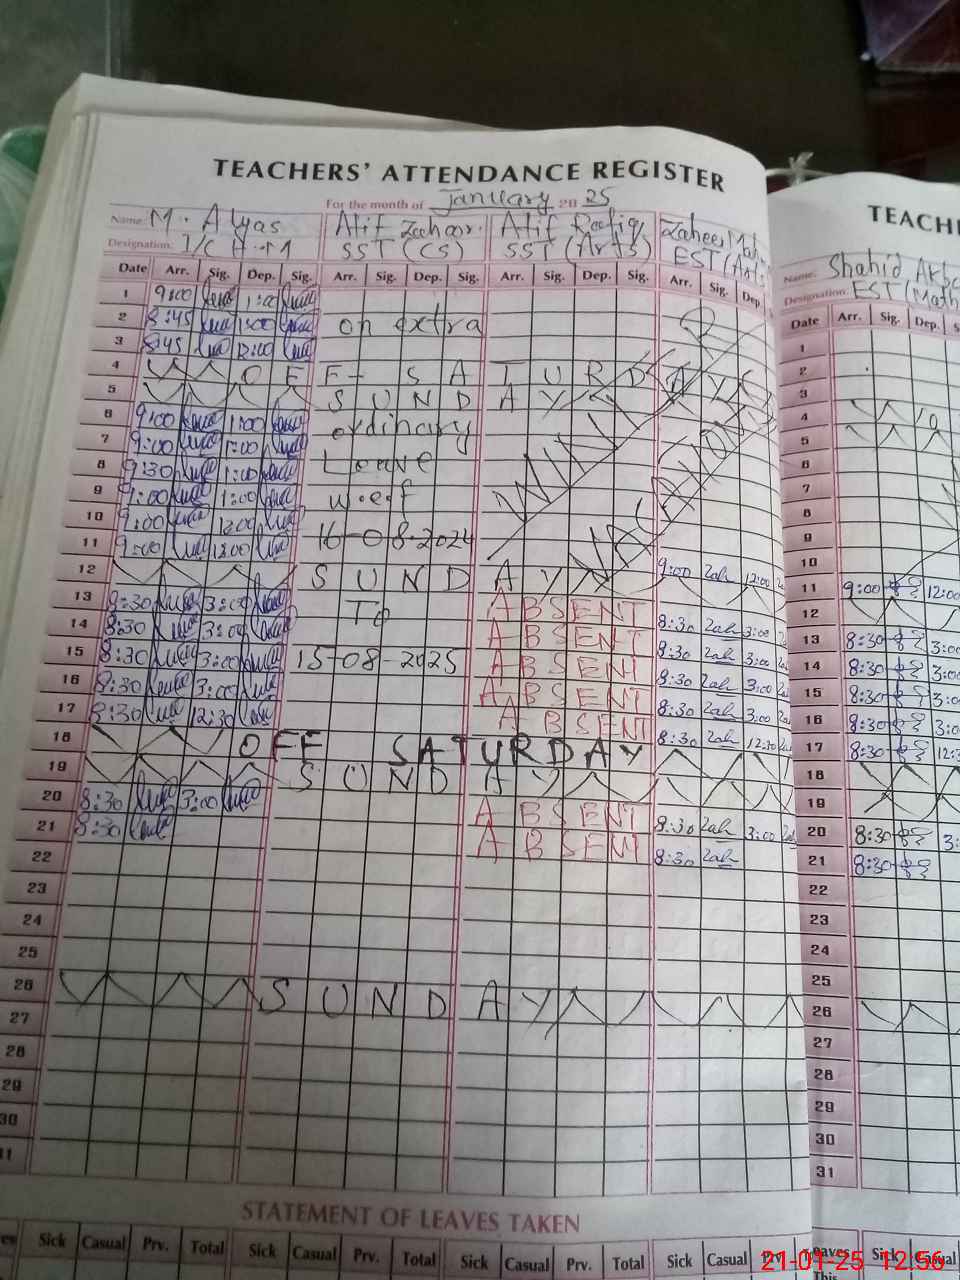 TEACHERS' ATTENDANCE REGISTER
For the month of January 20 25
Name: M. Alyas
Designation:
Atif Zahoor
SST (CS)
Atif Rafiq
SST (Arts)
Zaheer
EST (Arts
Date Arr. Sig. Dep. Sig. Arr. Sig. Dep. Sig. Arr. Sig. Dep. Sig. Arr. Sig. Dep.
1 9:00 1:00
2 8:45 1:00 on extra
3 8:45 12:00
4 OFF SATURDAY
5 SUNDAY
6 9:00 1:00 ordinary
7 9:00 1:00 Leave
8 9:30 1:00 w.e.f
9 9:00 1:00
10 9:00 1:00 16-08-2024
11 9:00 1:00 9:00 Zah 12:00
12 SUNDAY
13 8:30 3:00 To ABSENT 8:30 Zah 3:00
14 8:30 3:00 ABSENT 8:30 Zah 3:00
15 8:30 3:00 15-08-2025 ABSENT 8:30 Zah 3:00
16 8:30 3:00 ABSENT 8:30 Zah 3:00
17 8:30 12:30 ABSENT 8:30 Zah 12:30
18 OFF SATURDAY
19 SUNDAY
20 8:30 3:00 ABSENT 8:30 Zah 3:00
21 8:30 ABSENT 8:30 Zah
22
23
24
25
26 SUNDAY
27
28
29
30
31
WINTER VACATION
STATEMENT OF LEAVES TAKEN
Sick Casual Prv. Total Sick Casual Prv. Total Sick Casual Prv. Total Sick Casual Prv.
TEACH
Name: Shahid
Designation: EST (Math
Date Arr. Sig. Dep.
1
2
3
4
5
6
7
8
9
10
11 9:00 12:00
12
13 8:30 3:00
14 8:30 3:00
15 8:30 3:00
16 8:30 3:00
17 8:30 12:3
18
19
20 8:30 3:
21 8:30
22
23
24
25
26
27
28
29
30
31
Leaves Sick Casual
This
21-01-25 12:56